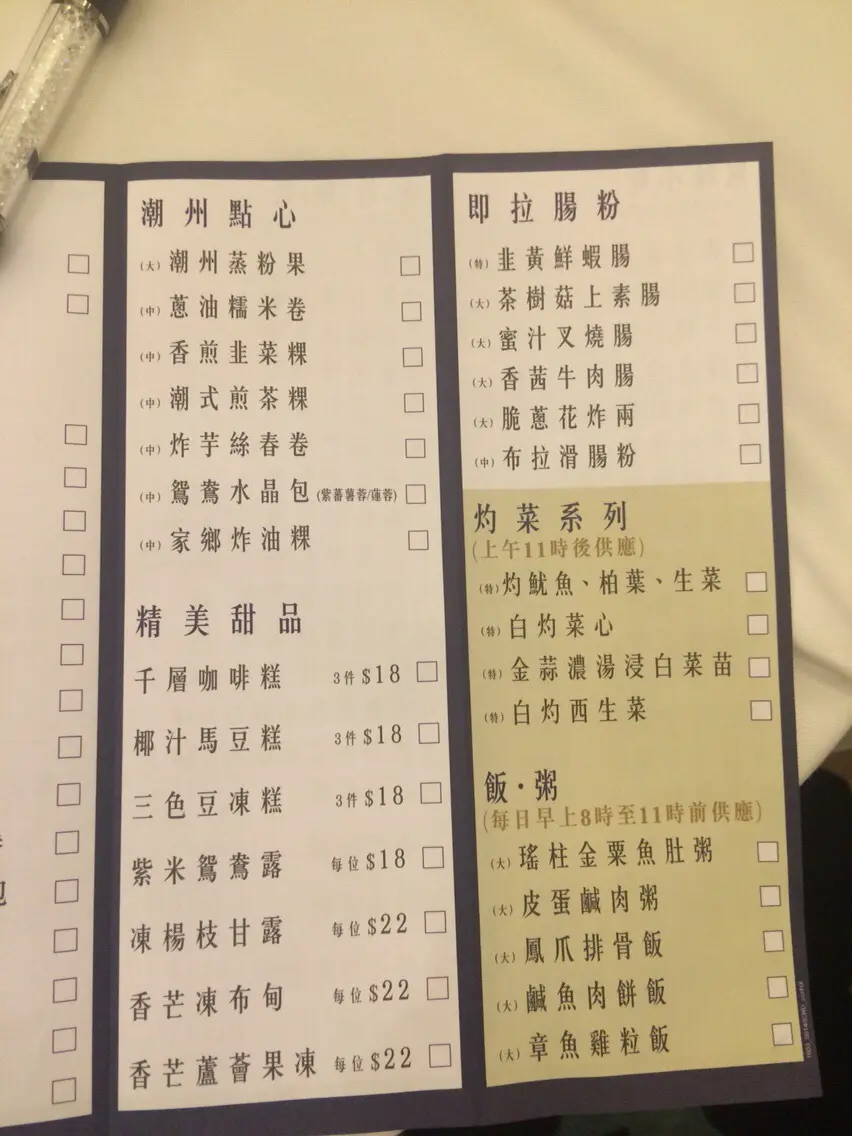 潮州點心
(大) 潮州蒸粉果
(中) 蔥油糯米卷
(中) 香煎韭菜粿
(中) 潮式煎茶粿
(中) 炸芋絲春卷
(中) 鴛鴦水晶包 (紫蕃薯蓉/蓮蓉)
(中) 家鄉炸油粿
精美甜品
千層咖啡糕 3件 $18
椰汁馬豆糕 3件 $18
三色豆凍糕 3件 $18
紫米鴛鴦露 每位 $18
凍楊枝甘露 每位 $22
香芒凍布甸 每位 $22
香芒蘆薈果凍 每位 $22
即拉腸粉
(特) 韭黃鮮蝦腸
(大) 茶樹菇上素腸
(大) 蜜汁叉燒腸
(大) 香茜牛肉腸
(大) 脆蔥花炸兩
(中) 布拉滑腸粉
灼菜系列
(上午11時後供應)
(特) 灼魷魚、柏葉、生菜
(特) 白灼菜心
(特) 金蒜濃湯浸白菜苗
(特) 白灼西生菜
飯·粥
(每日早上8時至11時前供應)
(大) 瑤柱金粟魚肚粥
(大) 皮蛋鹹肉粥
(大) 鳳爪排骨飯
(大) 鹹魚肉餅飯
(大) 章魚雞粒飯